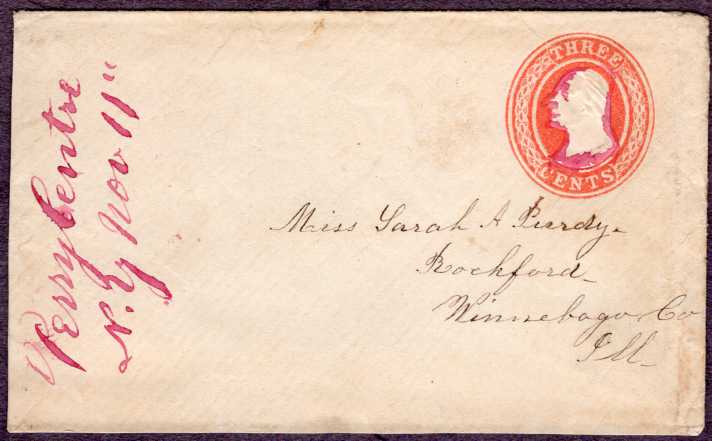 Perry Centre
N.Y Nov 11"
THREE
CENTS
Miss Sarah A Purdy.
Rockford
Winnebago Co
Ill